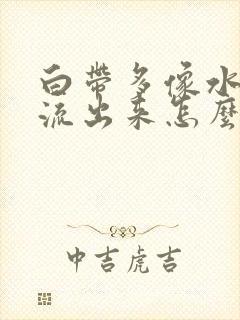 白帶多像水
流出來怎麼
中吉虎吉